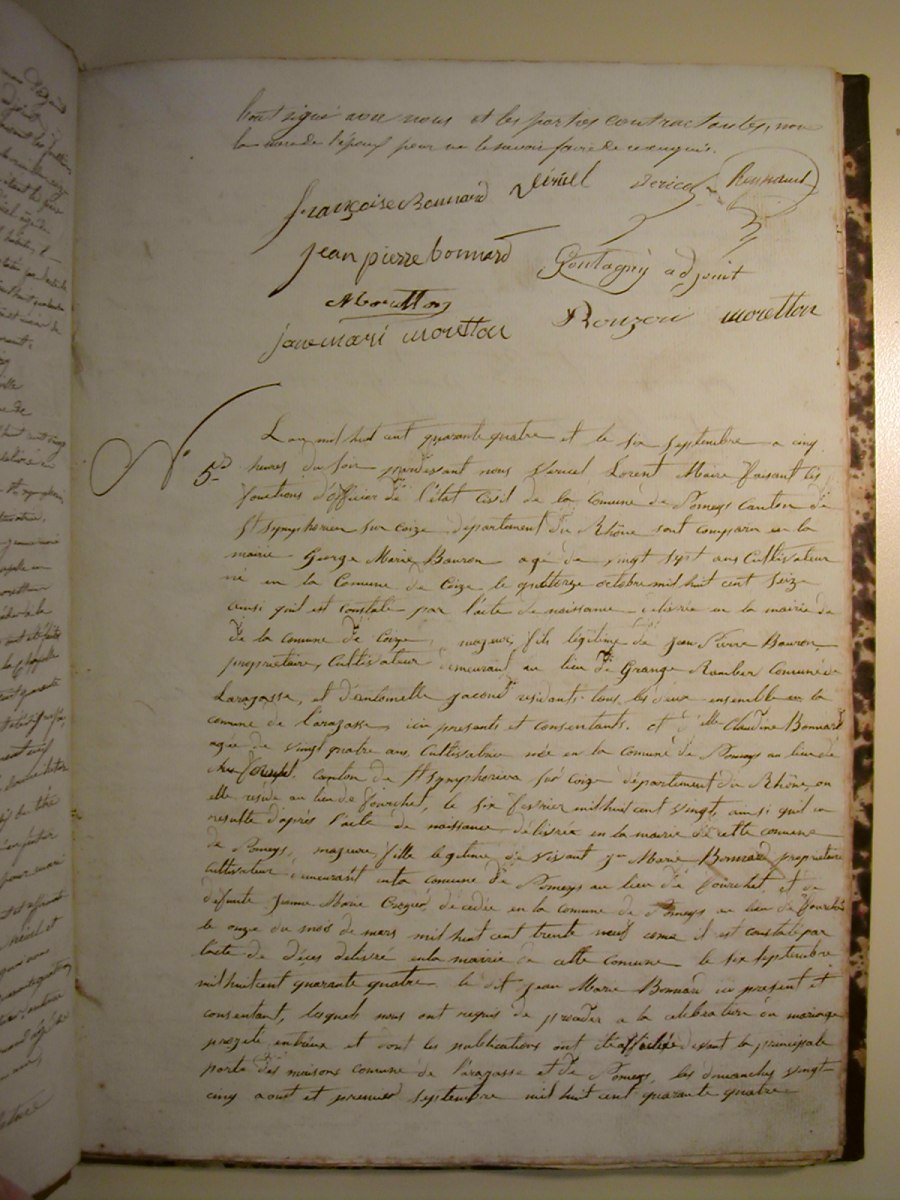 ont signé avec nous et les parties contractantes, non
la mere de l'époux pour ne le savoir faire de ce enquis.
françoise Bonnard
jean pierre bonnard
Goutagny adjoint
Moretton
Rouzon moretton
jean mari moretton
N° 5
L'an mil huit cent quarante quatre et le six septembre a cinq
heures du soir pardevant nous Veruel Lorent Maire faisant les
fonctions d'officier de l'état Civil de la Comune de Pomeys Canton de
St symphorien sur coize département du Rhône sont comparu en la
mairie George Marie Bouron agé de vingt sept ans Cultivateur
né en la Comune de Coize le quatorze octobre mil huit cent seize
ainsi quil est constaté par l'acte de naissance délivré en la mairie de
de la comune de Coize, majeur, fils légitime de Jean Pierre Bouron,
propriétaire, Cultivateur demeurant au lieu de Grange Rambert Comune de
Larajasse, et d'antoinette jacoud résidants tous les deux ensemble en la
comune de l'arajasse ici présents et consentants. et Dlle Claudine Bonnard
agée de vingt quatre ans Cultivatrice née en la Comune de Pomeys au lieu de
canton de St symphorien sur coize département du Rhône, ou
elle réside au lieu de Fourchet, le six fevrier mil huit cent vingt, ainsi quil en
resulte d'après l'acte de naissance délivrée en la mairie de cette comune
de Pomeys, majeure, fille légitime de vivant jn Marie Bonnard propriétaire
Cultivateur demeurant en la comune de Pomeys au lieu de Fourchet, et de
defunte Jeanne Marie décédée en la Comune de Pomeys au lieu de Fourchet
le onze du mois de mars mil huit cent trente neuf come il est constaté par
l'acte de décès délivré en la mairie de cette Comune le six septembre
mil huit cent quarante quatre. le dit jean Marie Bonnard ici present et
consentant, lesquels nous ont requis de procéder a la célébration du mariage
projeté entr'eux et dont les publications ont été affichée devant la principale
porte des maisons comune de l'arajasse et de Pomeys, les dimanches vingt
cinq aout et premier septembre mil huit cent quarante quatre